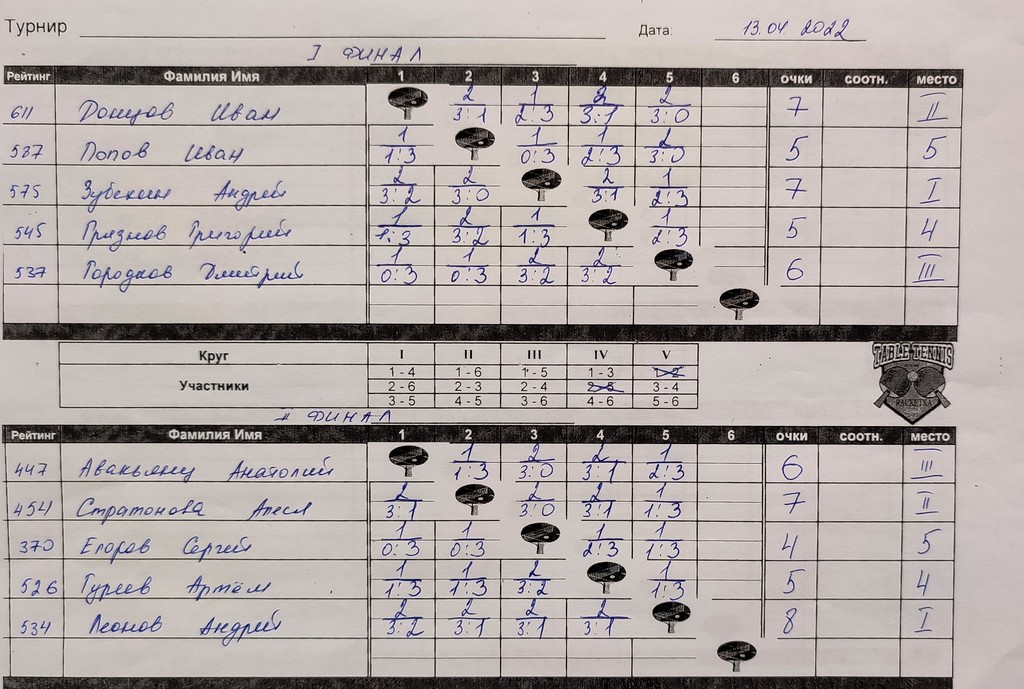 Турнир Дата: 13.04.2022
I ФИНАЛ
Рейтинг Фамилия Имя 1 2 3 4 5 6 очки соотн. место
611 Донцов Иван 2 3:1 1 2:3 2 3:1 2 3:0 7 II
587 Попов Иван 1 1:3 1 0:3 1 2:3 2 3:0 5 5
575 Зубехин Андрей 2 3:2 2 3:0 2 3:1 1 2:3 7 I
545 Грязнов Григорий 1 1:3 2 3:2 1 1:3 1 2:3 5 4
537 Городков Дмитрий 1 0:3 1 0:3 2 3:2 2 3:2 6 III
Круг I II III IV V
Участники 1 - 4 1 - 6 1 - 5 1 - 3 1 - 2
2 - 6 2 - 3 2 - 4 2 - 5 3 - 4
3 - 5 4 - 5 3 - 6 4 - 6 5 - 6
TABLE TENNIS
RACKETKA
II ФИНАЛ
Рейтинг Фамилия Имя 1 2 3 4 5 6 очки соотн. место
447 Авакьянц Анатолий 1 1:3 2 3:0 2 3:1 1 2:3 6 III
454 Стратонова Алеся 2 3:1 2 3:0 2 3:1 1 1:3 7 II
370 Егоров Сергей 1 0:3 1 0:3 1 2:3 1 1:3 4 5
526 Гуреев Артём 1 1:3 1 1:3 2 3:2 1 1:3 5 4
534 Леонов Андрей 2 3:2 2 3:1 2 3:1 2 3:1 8 I